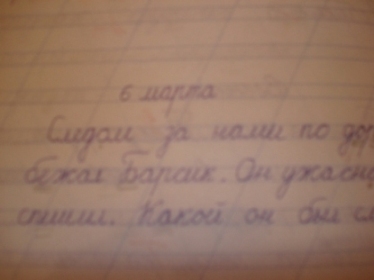 6 марта
Следом за нами по
бежал Барсик. Он ужасно
спешил. Какой он был